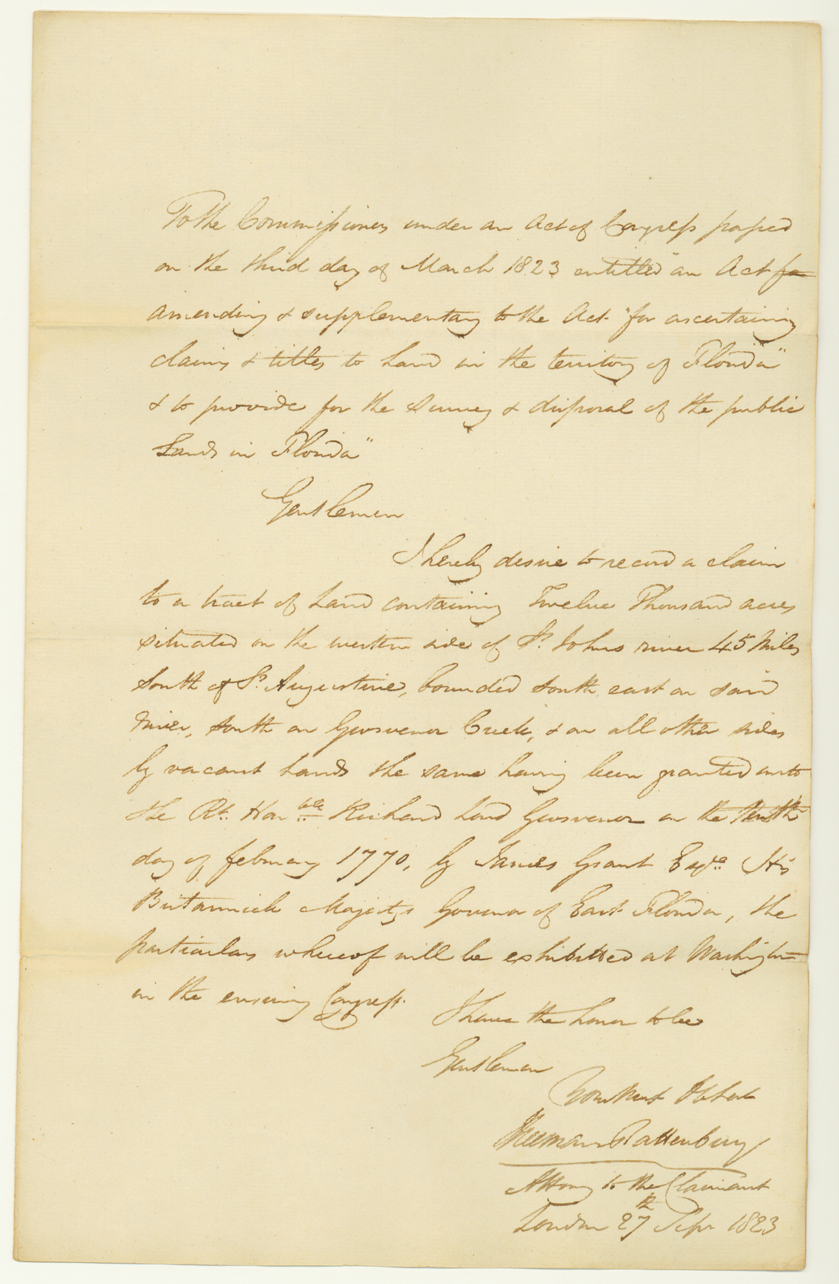 To the Commissioners under an Act of Congress passed
on the third day of March 1823 entitled "an Act for
amending & supplementary to the Act "for ascertaining
claims & titles to Land in the territory of Florida"
& to provide for the survey & disposal of the public
Lands in Florida"
Gentlemen
I hereby desire to record a claim
to a tract of Land containing Twelve Thousand acres
situated on the western side of St. Johns river 45 Miles
South of St. Augustine, bounded South east on said
River, South on Grosvenor Creek, & on all other sides
by vacant Lands the same having been granted unto
the Rt. Honble Richard Lord Grosvenor on the tenth
day of february 1770, by James Grant Esqre His
Britannick Majestys Govenor of East Florida, the
particulars whereof will be exhibitted at Washington
in the ensuing Congress.
I have the honor to be
Gentlemen
Your Most Obt
Freeman Rattenbury
Attorny to the Claimant
London 27th Sepr 1823